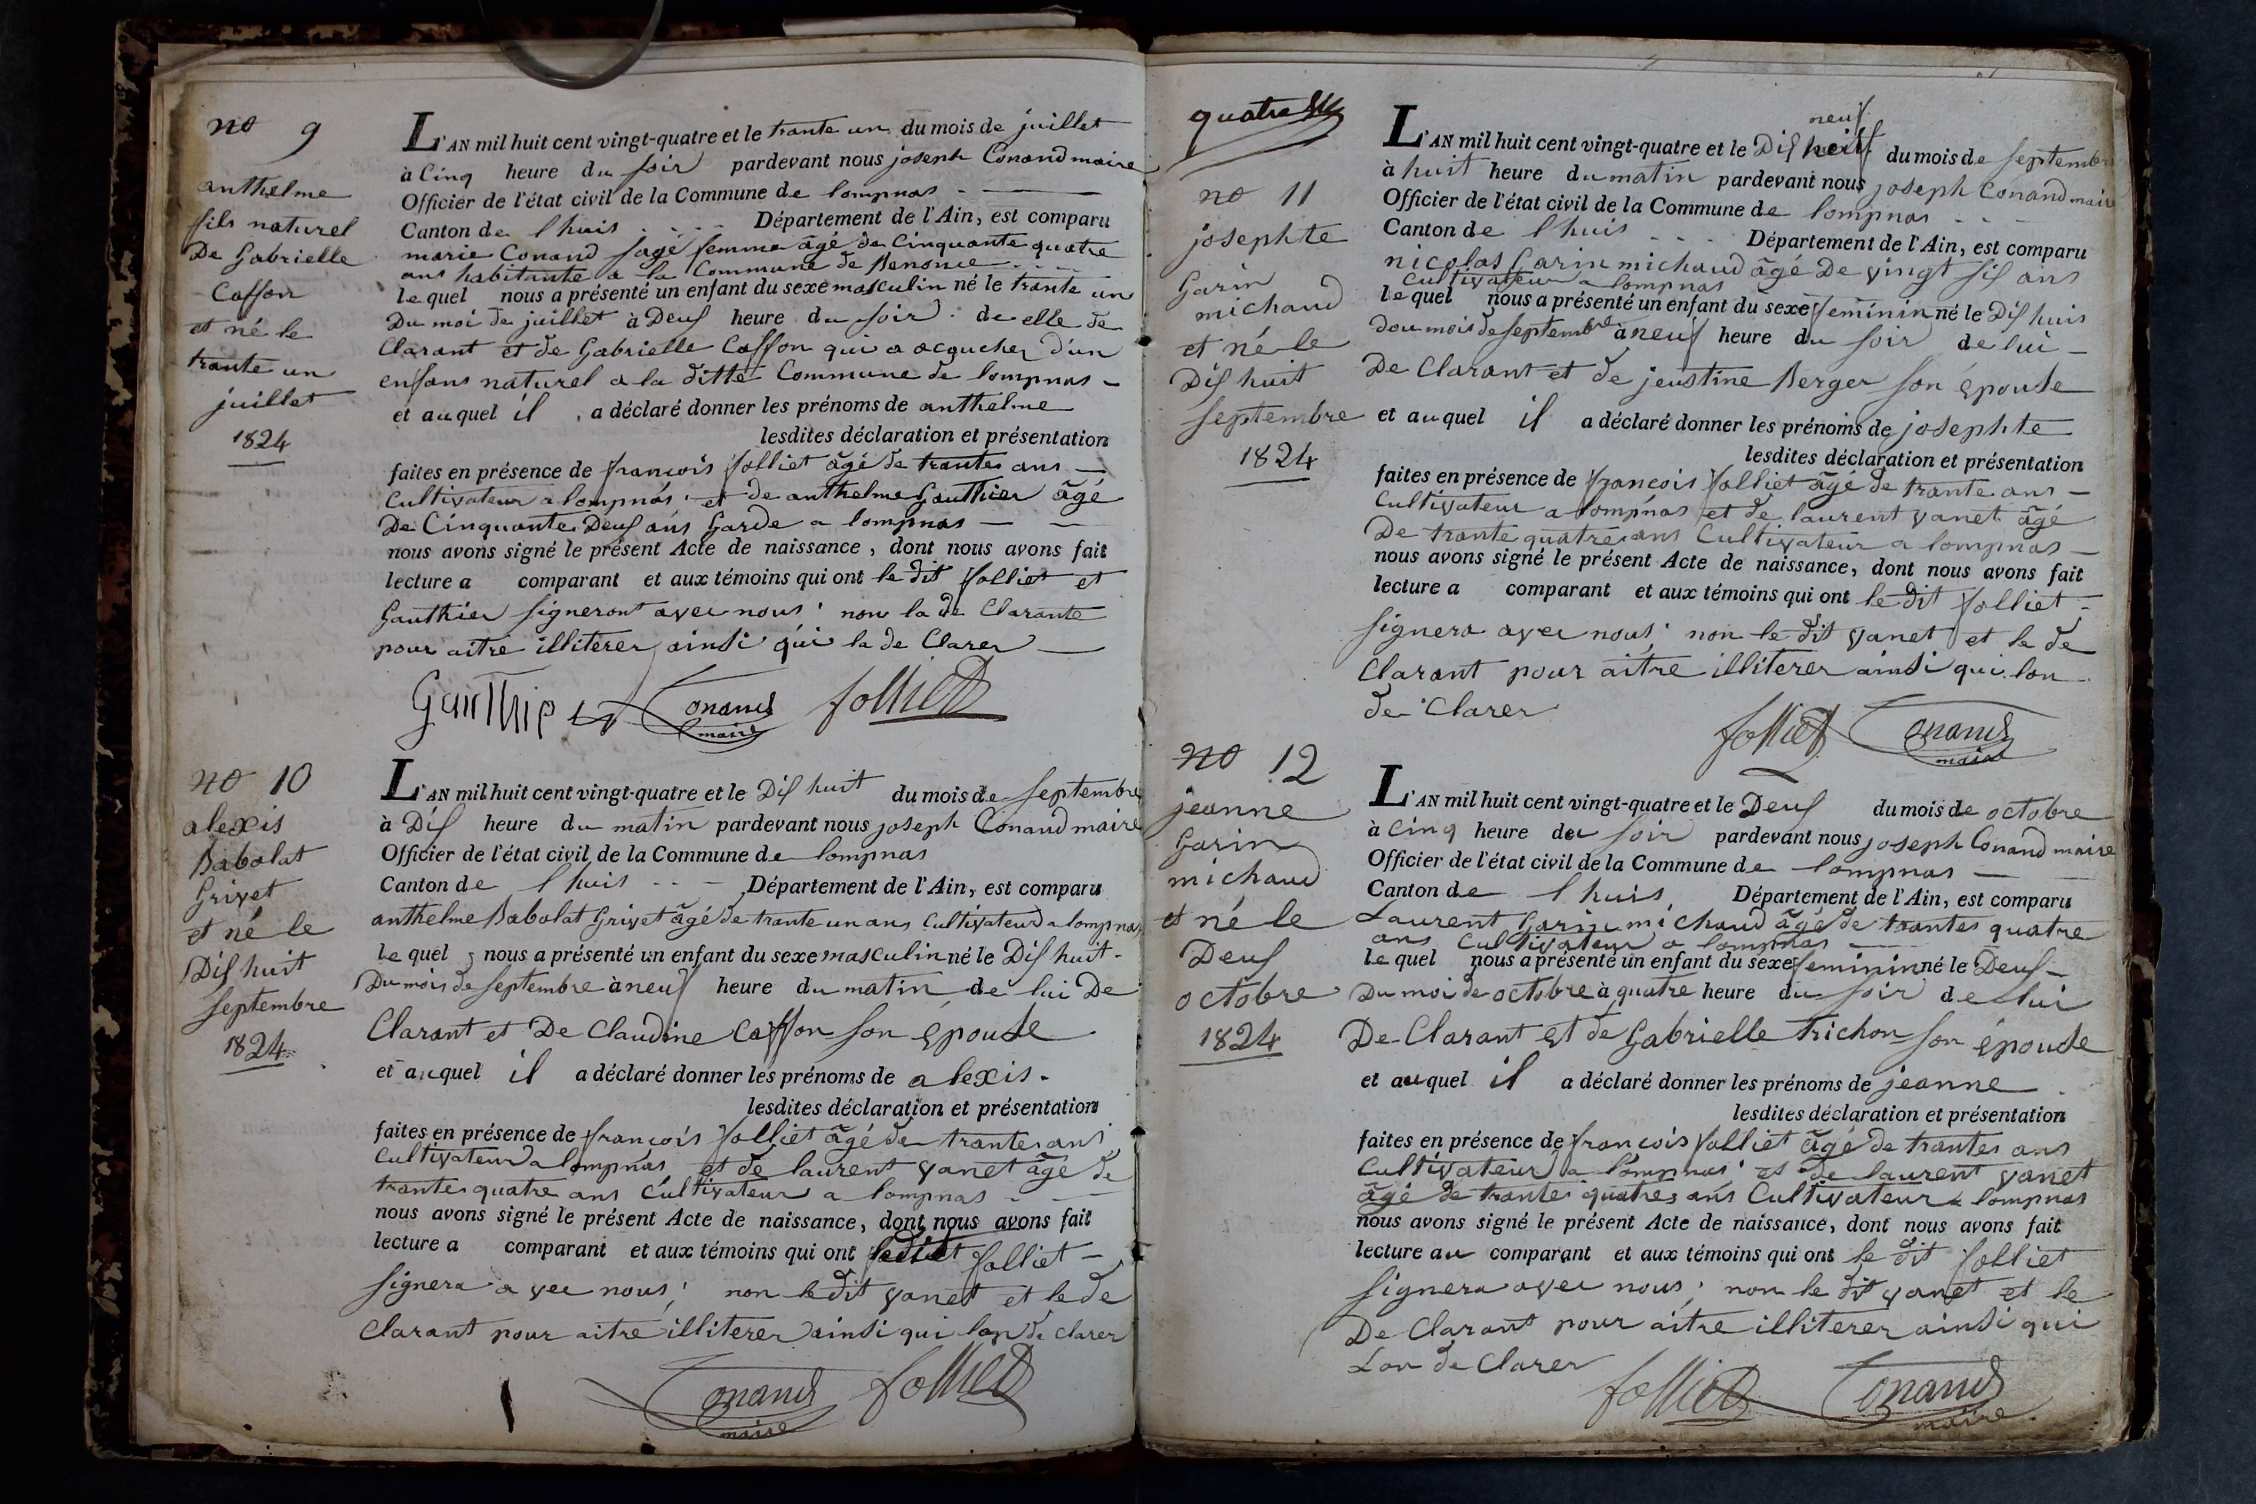 no 9
anthelme
fils naturel
De Gabrielle
Caffon
et né le
trante un
juillet
1824
L'AN mil huit cent vingt-quatre et le trante un du mois de juillet
à Cinq heure du soir pardevant nous joseph Conand maire
Officier de l'état civil de la Commune de lompnas
Canton de l huis Département de l'Ain, est comparu
marie Conand sage femme âgé de Cinquante quatre
ans habitante a la Commune de Benonce
le quel nous a présenté un enfant du sexe masculin né le trante un
Du moi de juillet à Deus heure du soir de elle de
Clarant et de Gabrielle Caffon qui a acoucher d'un
enfans naturel a la ditte Commune de lompnas
et auquel il a déclaré donner les prénoms de anthelme
lesdites déclaration et présentation
faites en présence de françois folliet âgé de trantes ans
Cultivateur a lompnas et de anthelme Gauthier âgé
De Cinquantes Deus ans Garde a lompnas
nous avons signé le présent Acte de naissance, dont nous avons fait
lecture a comparant et aux témoins qui ont le dit folliet et
Gauthier signeront avec nous non la de Clarante
pour aitre illiterer ainsi qui la de Clarer
Gauthier Conand folliet
maire
no 10
alexis
Babolat
Grivet
et né le
Dis huit
septembre
1824
L'AN mil huit cent vingt-quatre et le Dis huit du mois de septembre
à Dis heure du matin pardevant nous joseph Conand maire
Officier de l'état civil de la Commune de lompnas
Canton de l huis Département de l'Ain, est comparu
anthelme Babolat Grivet âgé de trante un ans Cultivateur a lompnas
le quel nous a présenté un enfant du sexe masculin né le Dis huit
Du mois de septembre à neuf heure du matin de lui De
Clarant et De Claudine Caffon son épouse
et auquel il a déclaré donner les prénoms de alexis
lesdites déclaration et présentation
faites en présence de françois folliet âgé de trantes ans
Cultivateur a lompnas et de laurent vanet âgé de
trantes quatre ans Cultivateur a lompnas
nous avons signé le présent Acte de naissance, dont nous avons fait
lecture a comparant et aux témoins qui ont ledit folliet
signera avec nous non le dit vanet et le de
Clarant pour aitre illiterer ainsi qui lon de clarer
Conand folliet
maire
quatre
no 11
josephte
Garin
michaud
et né le
Dis huit
septembre
1824
neuf
L'AN mil huit cent vingt-quatre et le Dis du mois de septembre
à huit heure du matin pardevant nous joseph Conand maire
Officier de l'état civil de la Commune de lompnas
Canton de l huis Département de l'Ain, est comparu
nicolas Garin michaud âgé De vingt sis ans
Cultivateur a lompnas
le quel nous a présenté un enfant du sexe feminin né le Dis huis
dou mois de septembre à neuf heure du soir de lui
De Clarant et de jeustine Berger son épouse
et auquel il a déclaré donner les prénoms de josephte
lesdites déclaration et présentation
faites en présence de françois folliet âgé de trante ans
Cultivateur a lompnas et de laurent vanet âgé
De trante quatre ans Cultivateur a lompnas
nous avons signé le présent Acte de naissance, dont nous avons fait
lecture a comparant et aux témoins qui ont le dit folliet
signera avec nous non le dit vanet et le de
Clarant pour aitre illiterer ainsi qui lon
de Clarer
folliet Conand
maire
no 12
jeanne
Garin
michaud
et né le
Deus
octobre
1824
L'AN mil huit cent vingt-quatre et le Deus du mois de octobre
à Cinq heure du soir pardevant nous joseph Conand maire
Officier de l'état civil de la Commune de lompnas
Canton de l huis Département de l'Ain, est comparu
Laurent Garin michaud âgé de trantes quatre
ans Cultivateur a lompnas
le quel nous a présenté un enfant du sexe feminin né le Deus
Du moi de octobre à quatre heure du soir de lui
De Clarant et de Gabrielle Trichon son épouse
et auquel il a déclaré donner les prénoms de jeanne
lesdites déclaration et présentation
faites en présence de françois folliet âgé de trantes ans
Cultivateur a lompnas et de laurent vanet
âgé de trantes quatres ans Cultivateur a lompnas
nous avons signé le présent Acte de naissance, dont nous avons fait
lecture au comparant et aux témoins qui ont le dit folliet
signera avec nous non le dit vanet et le
De Clarant pour aitre illiterer ainsi qui
Lon de Clarer
folliet Conand
maire